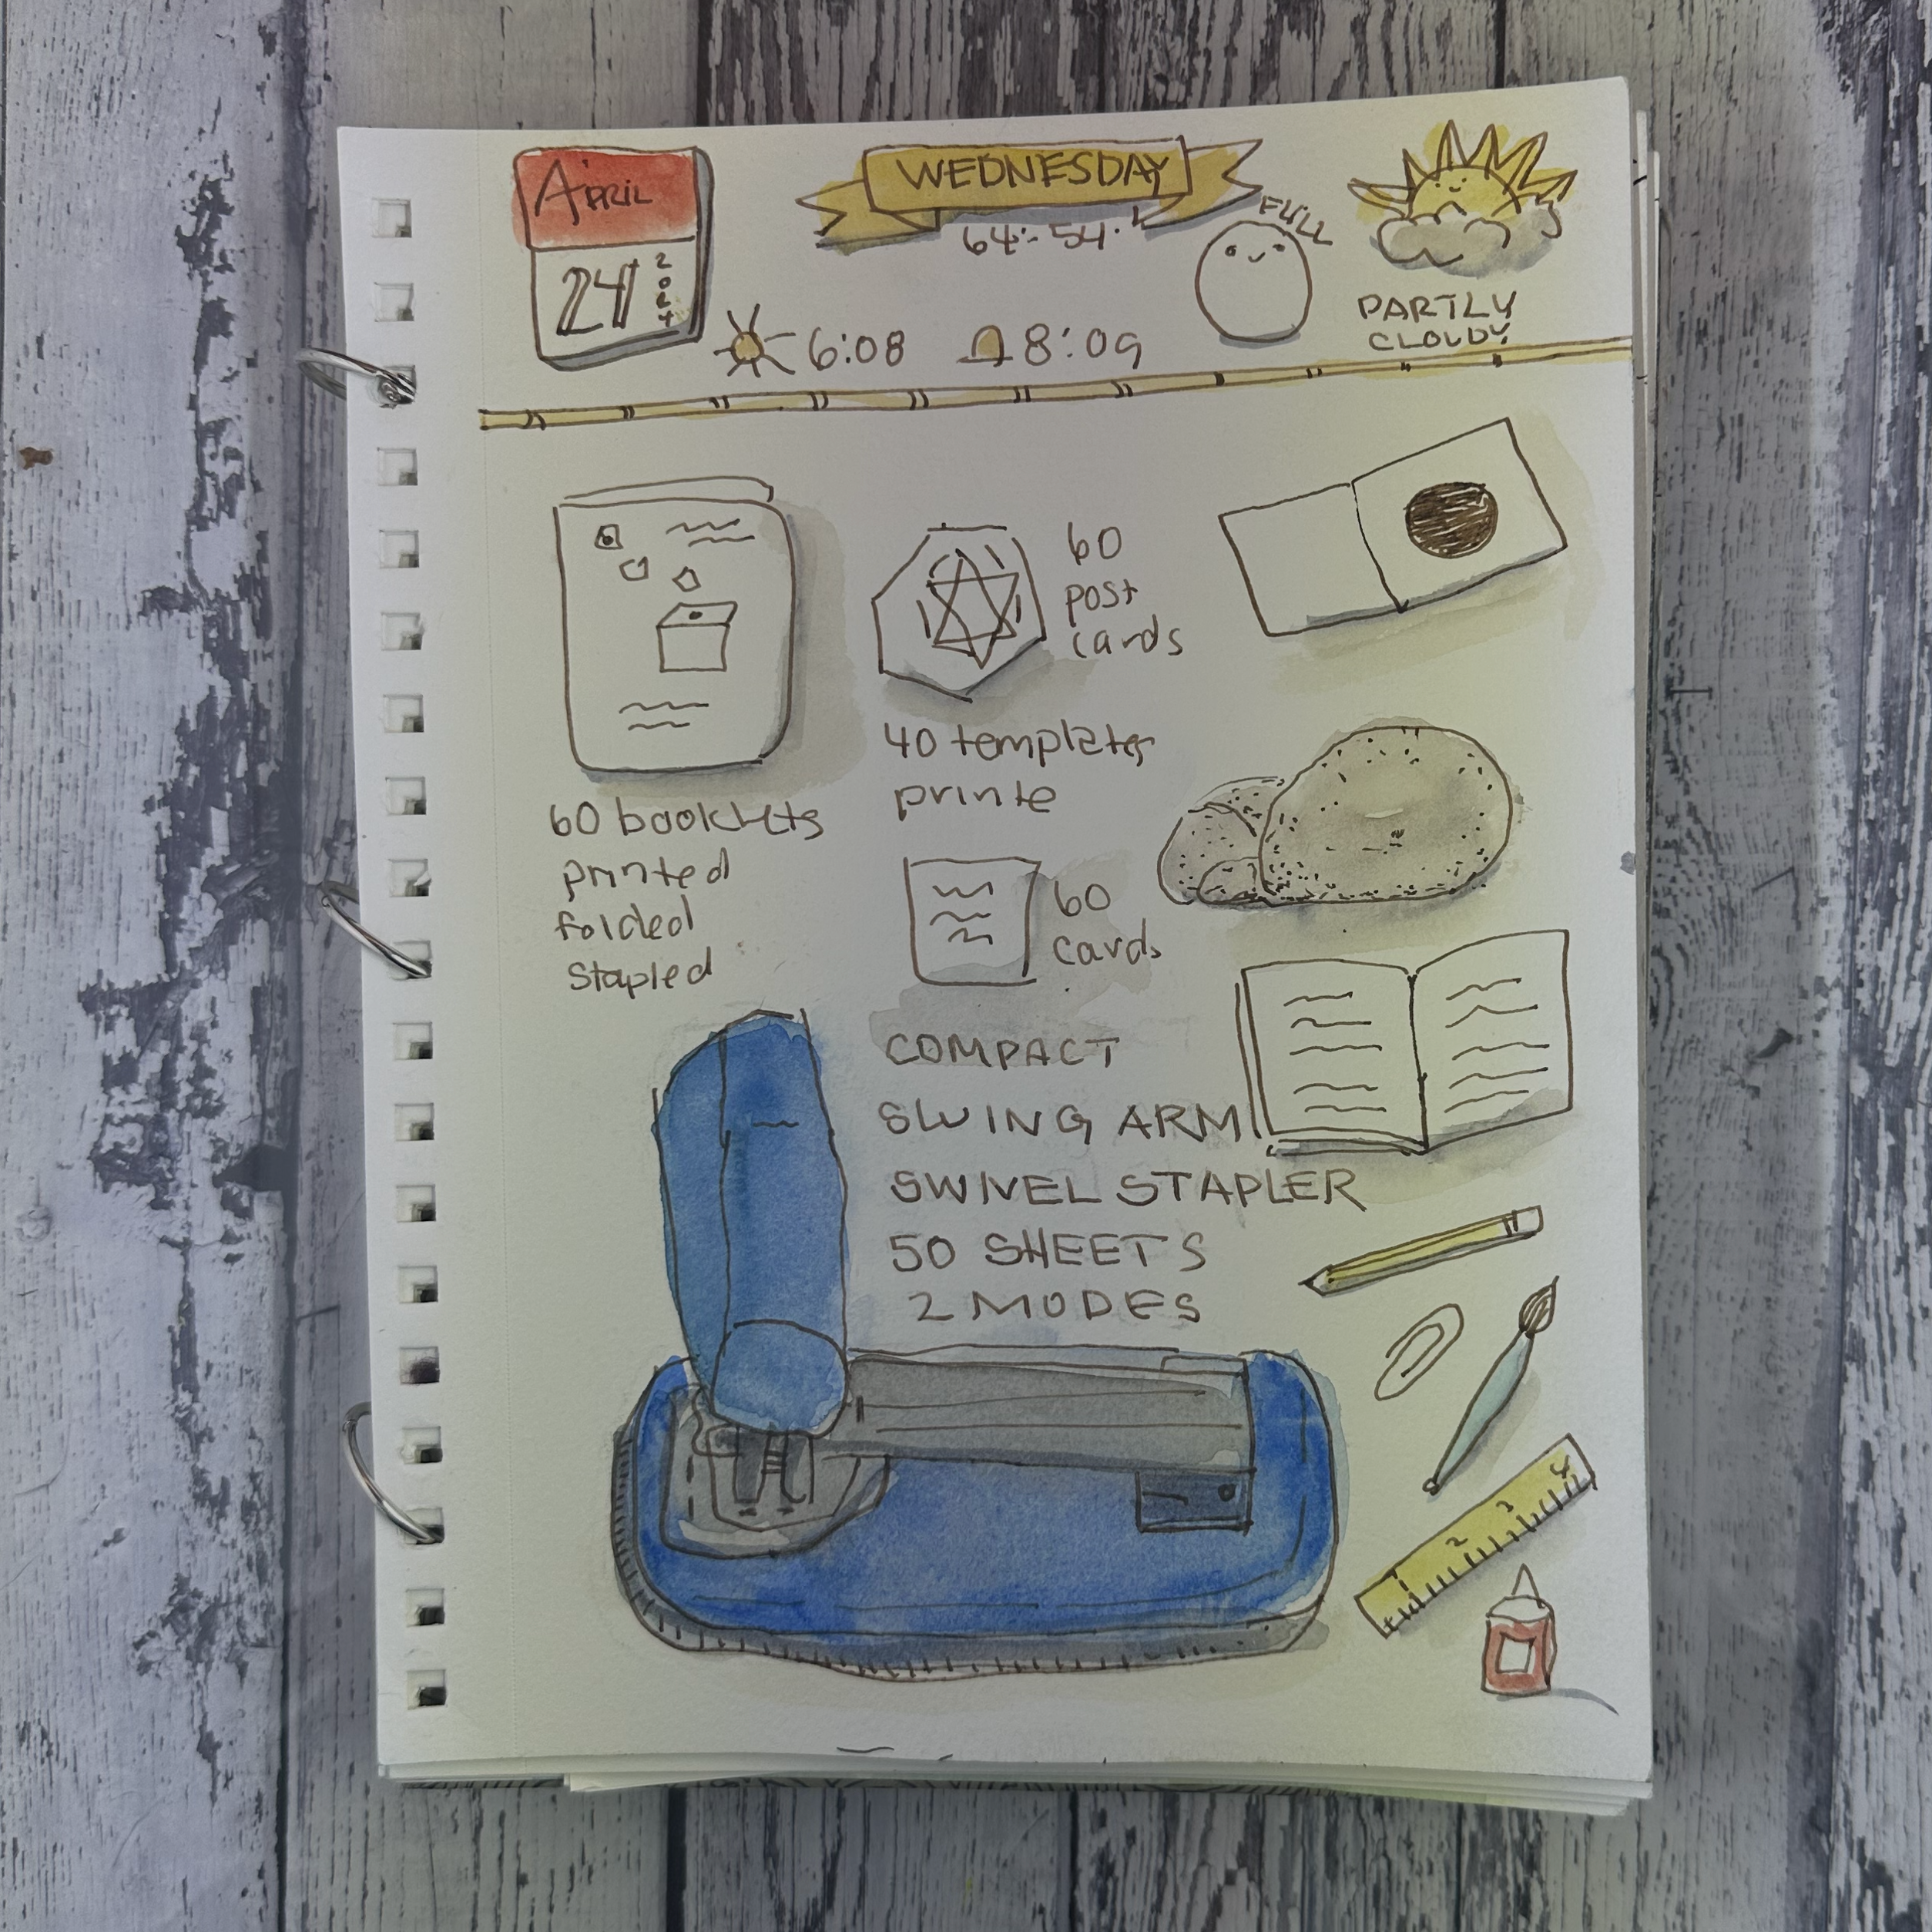 April
24
2024
WEDNESDAY
64°-54°
FULL
6:08
8:09
PARTLY
CLOUDY
60 booklets
printed
folded
stapled
60
post
cards
40 templates
printe
60
cards
COMPACT
SWING ARM
SWIVEL STAPLER
50 SHEETS
2 MODES
1 2 3 4